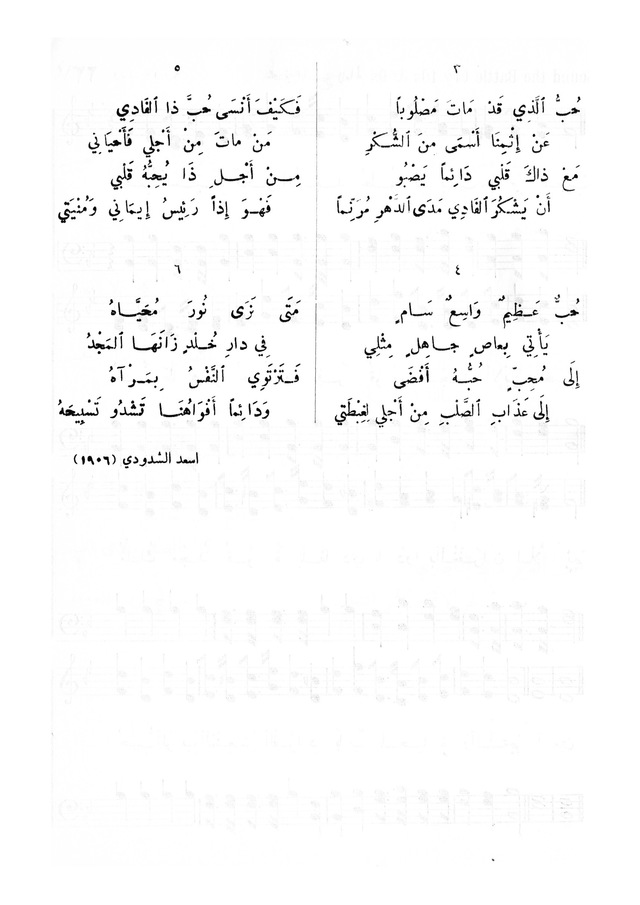 ٣
حُبُّ ٱلَّذِي قَدْ مَاتَ مَصْلُوبًا
عَنْ إِثْمِنَا أَسْمَى مِنَ ٱلشُّكْرِ
مَعْ ذَاكَ قَلْبِي دَائِمًا يَصْبُو
أَنْ يَشْكُرَ ٱلفَادِي مَدَى ٱلدَّهْرِ مُرَنِّمًا
٤
حُبٌّ عَظِيمٌ وَاسِعٌ سَامٍ
يَأْتِي بِعَاصٍ جَاهِلٍ مِثْلِي
إِلَى مُحِبٍّ حُبُّهُ أَفْضَى
إِلَى عَذَابِ ٱلصَّلْبِ مِنْ أَجْلِي لِغِبْطَتِي
٥
فَكَيْفَ أَنْسَى حُبَّ ذَا ٱلفَادِي
مَنْ مَاتَ مِنْ أَجْلِي فَأَحْيَانِي
مِنْ أَجْلِ ذَا يُحِبُّهُ قَلْبِي
فَهْوَ إِذًا رَئِيسُ إِيمَانِي وَمُنْيَتِي
٦
مَتَى نَرَى نُورَ مُحَيَّاهُ
فِي دَارِ خُلْدٍ زَانَهَا ٱلمَجْدُ
فَتَرْتَوِي ٱلنَّفْسُ بِمَرْآهُ
وَدَائِمًا أَفْوَاهُنَا تَشْدُو تَسْبِيحَهُ
اسعد الشدودي (١٩٠٦)